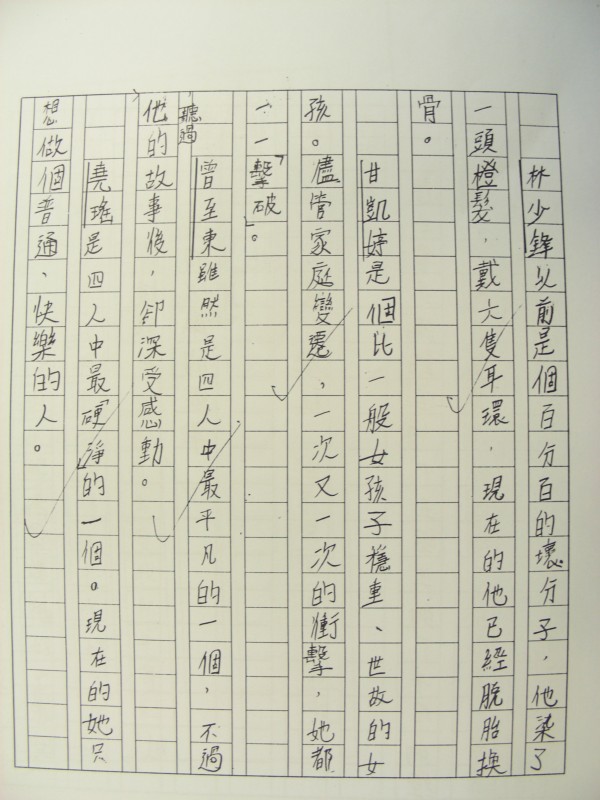 林少鋒以前是個百分百的壞分子，他染了
一頭橙髮，戴大隻耳環，現在的他已經脫胎換
骨。
甘凱婷是個比一般女孩子穩重、世故的女
孩。儘管家庭變遷，一次又一次的衝擊，她都
一一「擊破」。
曾至東雖然是四人中最平凡的一個，不過
聽過
他的故事後，卻深受感動。
堯瑤是四人中最「硬淨」的一個。現在的她只
想做個普通、快樂的人。